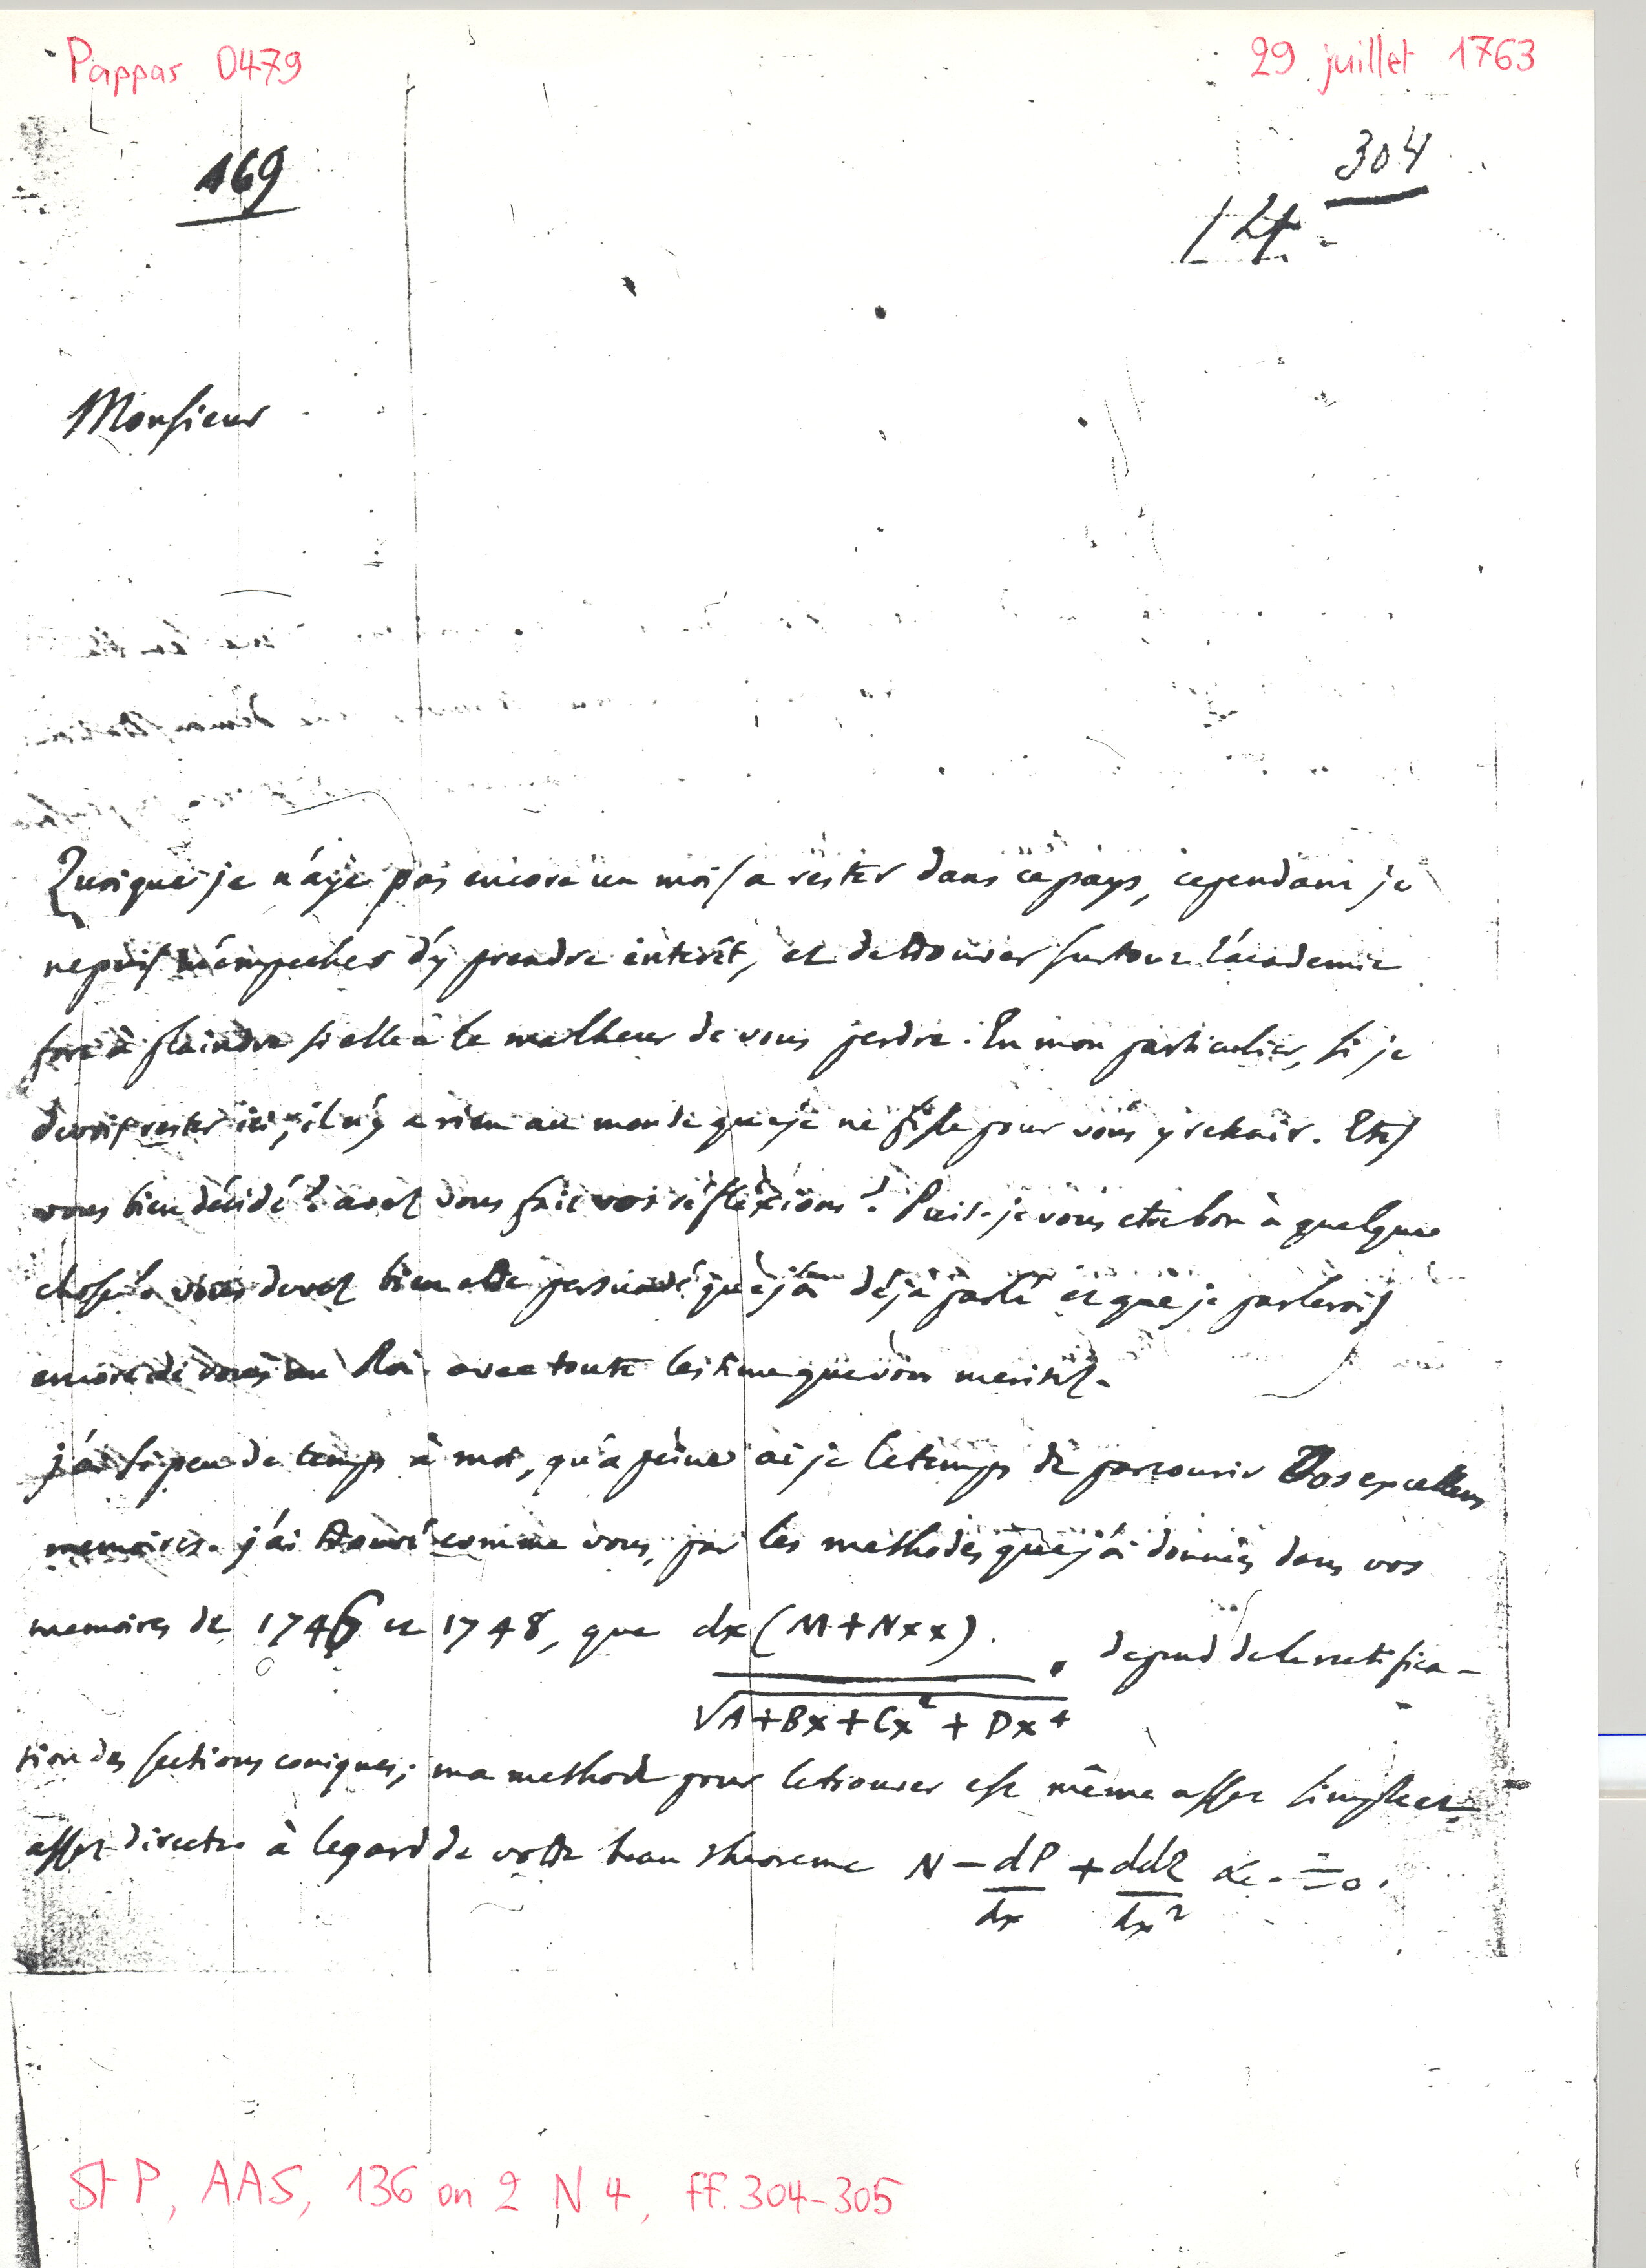 Pappas 0479
29 juillet 1763
169
304
124
Monsieur
Quoique je n'aye pas encore un mois a rester dans ce pays, cependant je
ne puis m'empecher d'y prendre interêt, et de trouver surtout l'academie
fort à plaindre si elle a le malheur de vous perdre. En mon particulier, si je
devois rester ici, il n'y a rien au monde que je ne fisse pour vous y retenir. Etes
vous bien décidé? avez vous fait vos réflexions? Puis-je vous etre bon à quelque
chose? vous devez bien etre persuadé que j'ai déja parlé et que je parlerois
encore de vous au Roi avec toute l'estime que vous meritez.
j'ai si peu de temps à moi, qu'a peine ai je le temps de parcourir Vos excellens
memoires. j'ai trouvé comme vous, par les methodes que j'ai données dans vos
memoires de 1746 et 1748, que dx(M+Nxx) / √A+Bx+Cx²+Dx⁴ depend de la rectifica-
tion des sections coniques; ma methode pour le trouver est même assez simple et
assez directe. à l'egard de votre beau theoreme N - dP/dx + ddQ/dx² &c. = 0.
St P, AAS, 136 on 2 N 4, ff. 304-305